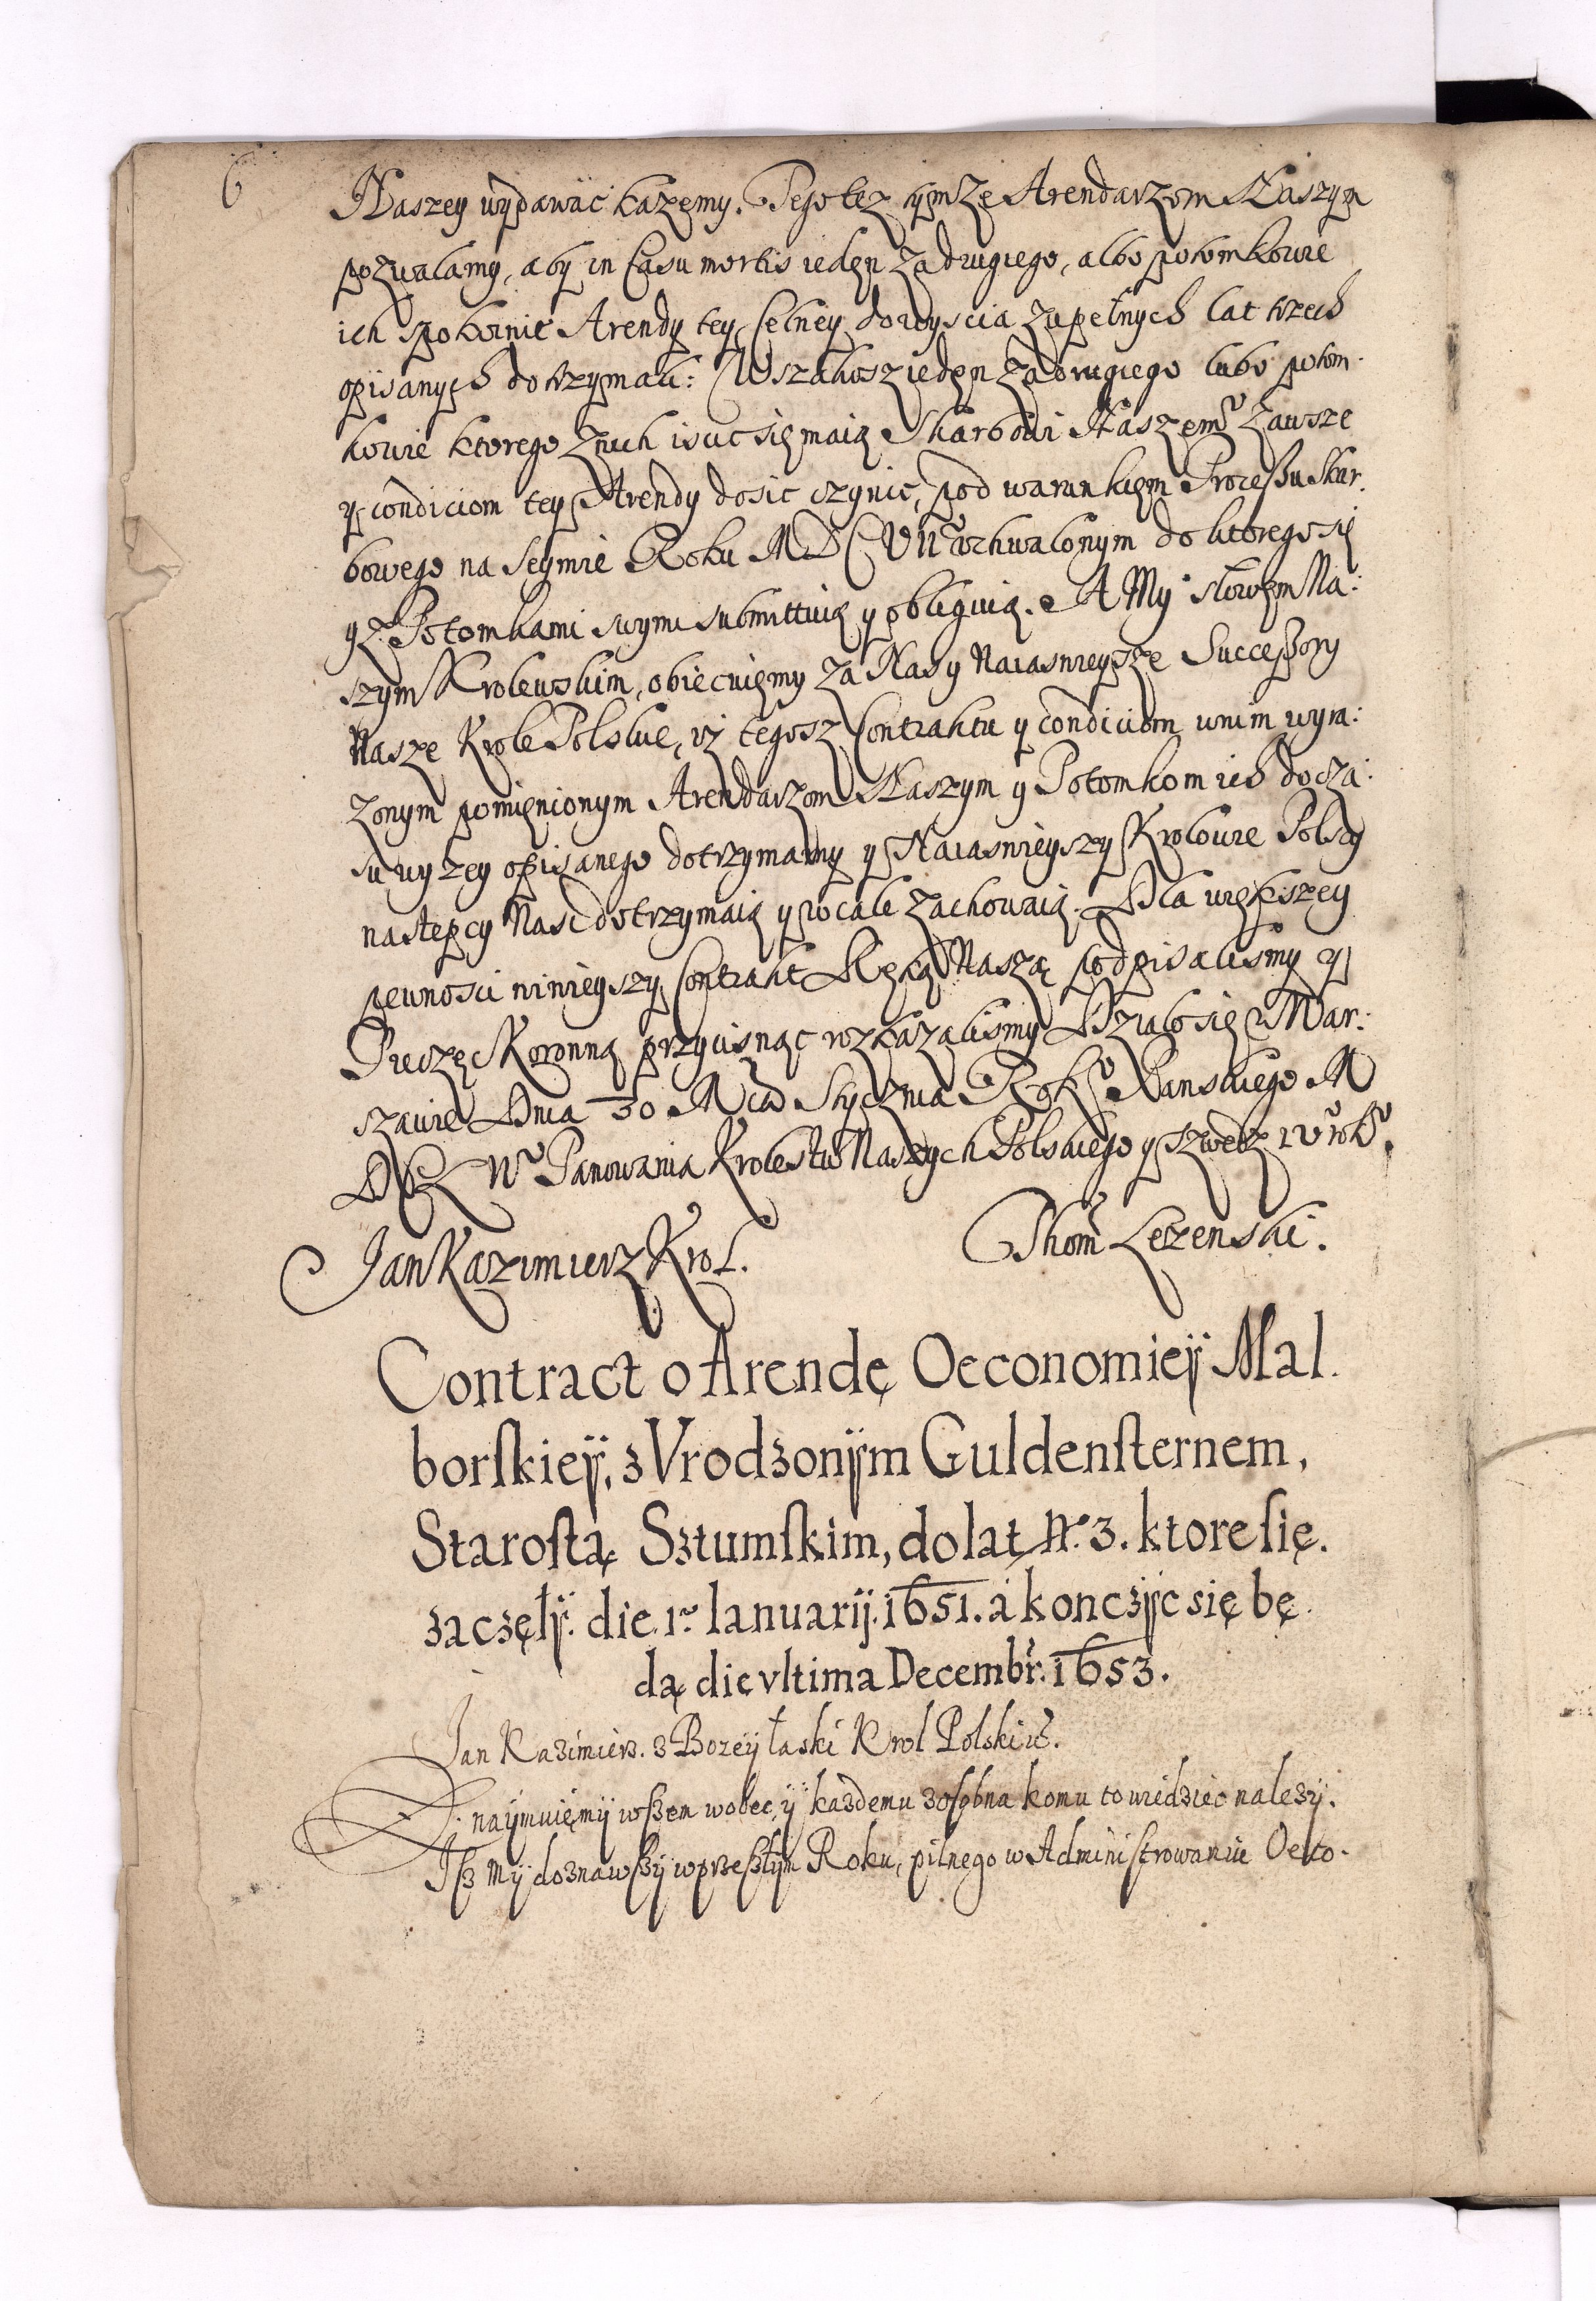 6
Naszey wydawać każemy. Tego też tymże Arendarzom Naszym
pozwalamy, aby in Casu mortis ieden za drugiego, albo potomkowie
ich spokoinie Arendy tey Celney do wyscia zupełnych lat trzech
opisanych dotrzymali: Wszakosz ieden za drugiego lubo potom-
kowie ktorego z nich iscic się maią Skarbowi Naszemu zawsze
y condiciom tey Arendy dosic czynic, pod warunkiem Processu Skar-
bowego na Seymie Roku MDC uchwalonym do ktorego się
y z Potomkami swymi submittuią y obliguią. A My słowem Na:
szym Krolewskim, obiecuięmy za Nas y Naiasnieysze Successory
Nasze Krole Polskie, iż tegosz Contraktu y condiciom w nim wyra:
zonym pomięnionym Arendarzom Naszym y Potomkom ich do cza:
su wyzey opisanego dotrzymamy y Naiasnieyszy Krolowie Polscy
następcy Nasi dotrzymaią y wcale zachowaią. Dla większey
pewnosci ninieyszy Contrakt Ręką Naszą podpisalismy y
Pieczęc Koronną przycisnąc rozkazalismy Działo się w War:
szawie Dnia 30 Mca Stycznia Roku Panskiego M
DCL Panowania Krolestw Naszych Polskiego y Szwedz roku.
Jan Kazimierz Krol.
Thom Lezenski.
Contract o Arendę Oeconomieÿ Mal.
borskieÿ, z Vrodzonÿm Guldensternem,
Starostą Sztumskim, do lat Nr. 3. ktore się.
zaczęłÿ. die 1. Ianuarij. 1651. a konczÿc się bę.
dą die vltima Decembr. 1653.
Jan Kazimierz. z Bozeÿ łaski Krol Polski etc.
Znaÿmuięmÿ wszem wobec, ÿ kazdemu zosobna komu to wiedziec nalezÿ.
Isz Mÿ doznawszÿ w przeszłÿm Roku, pilnego w Administrowaniu Oeko-